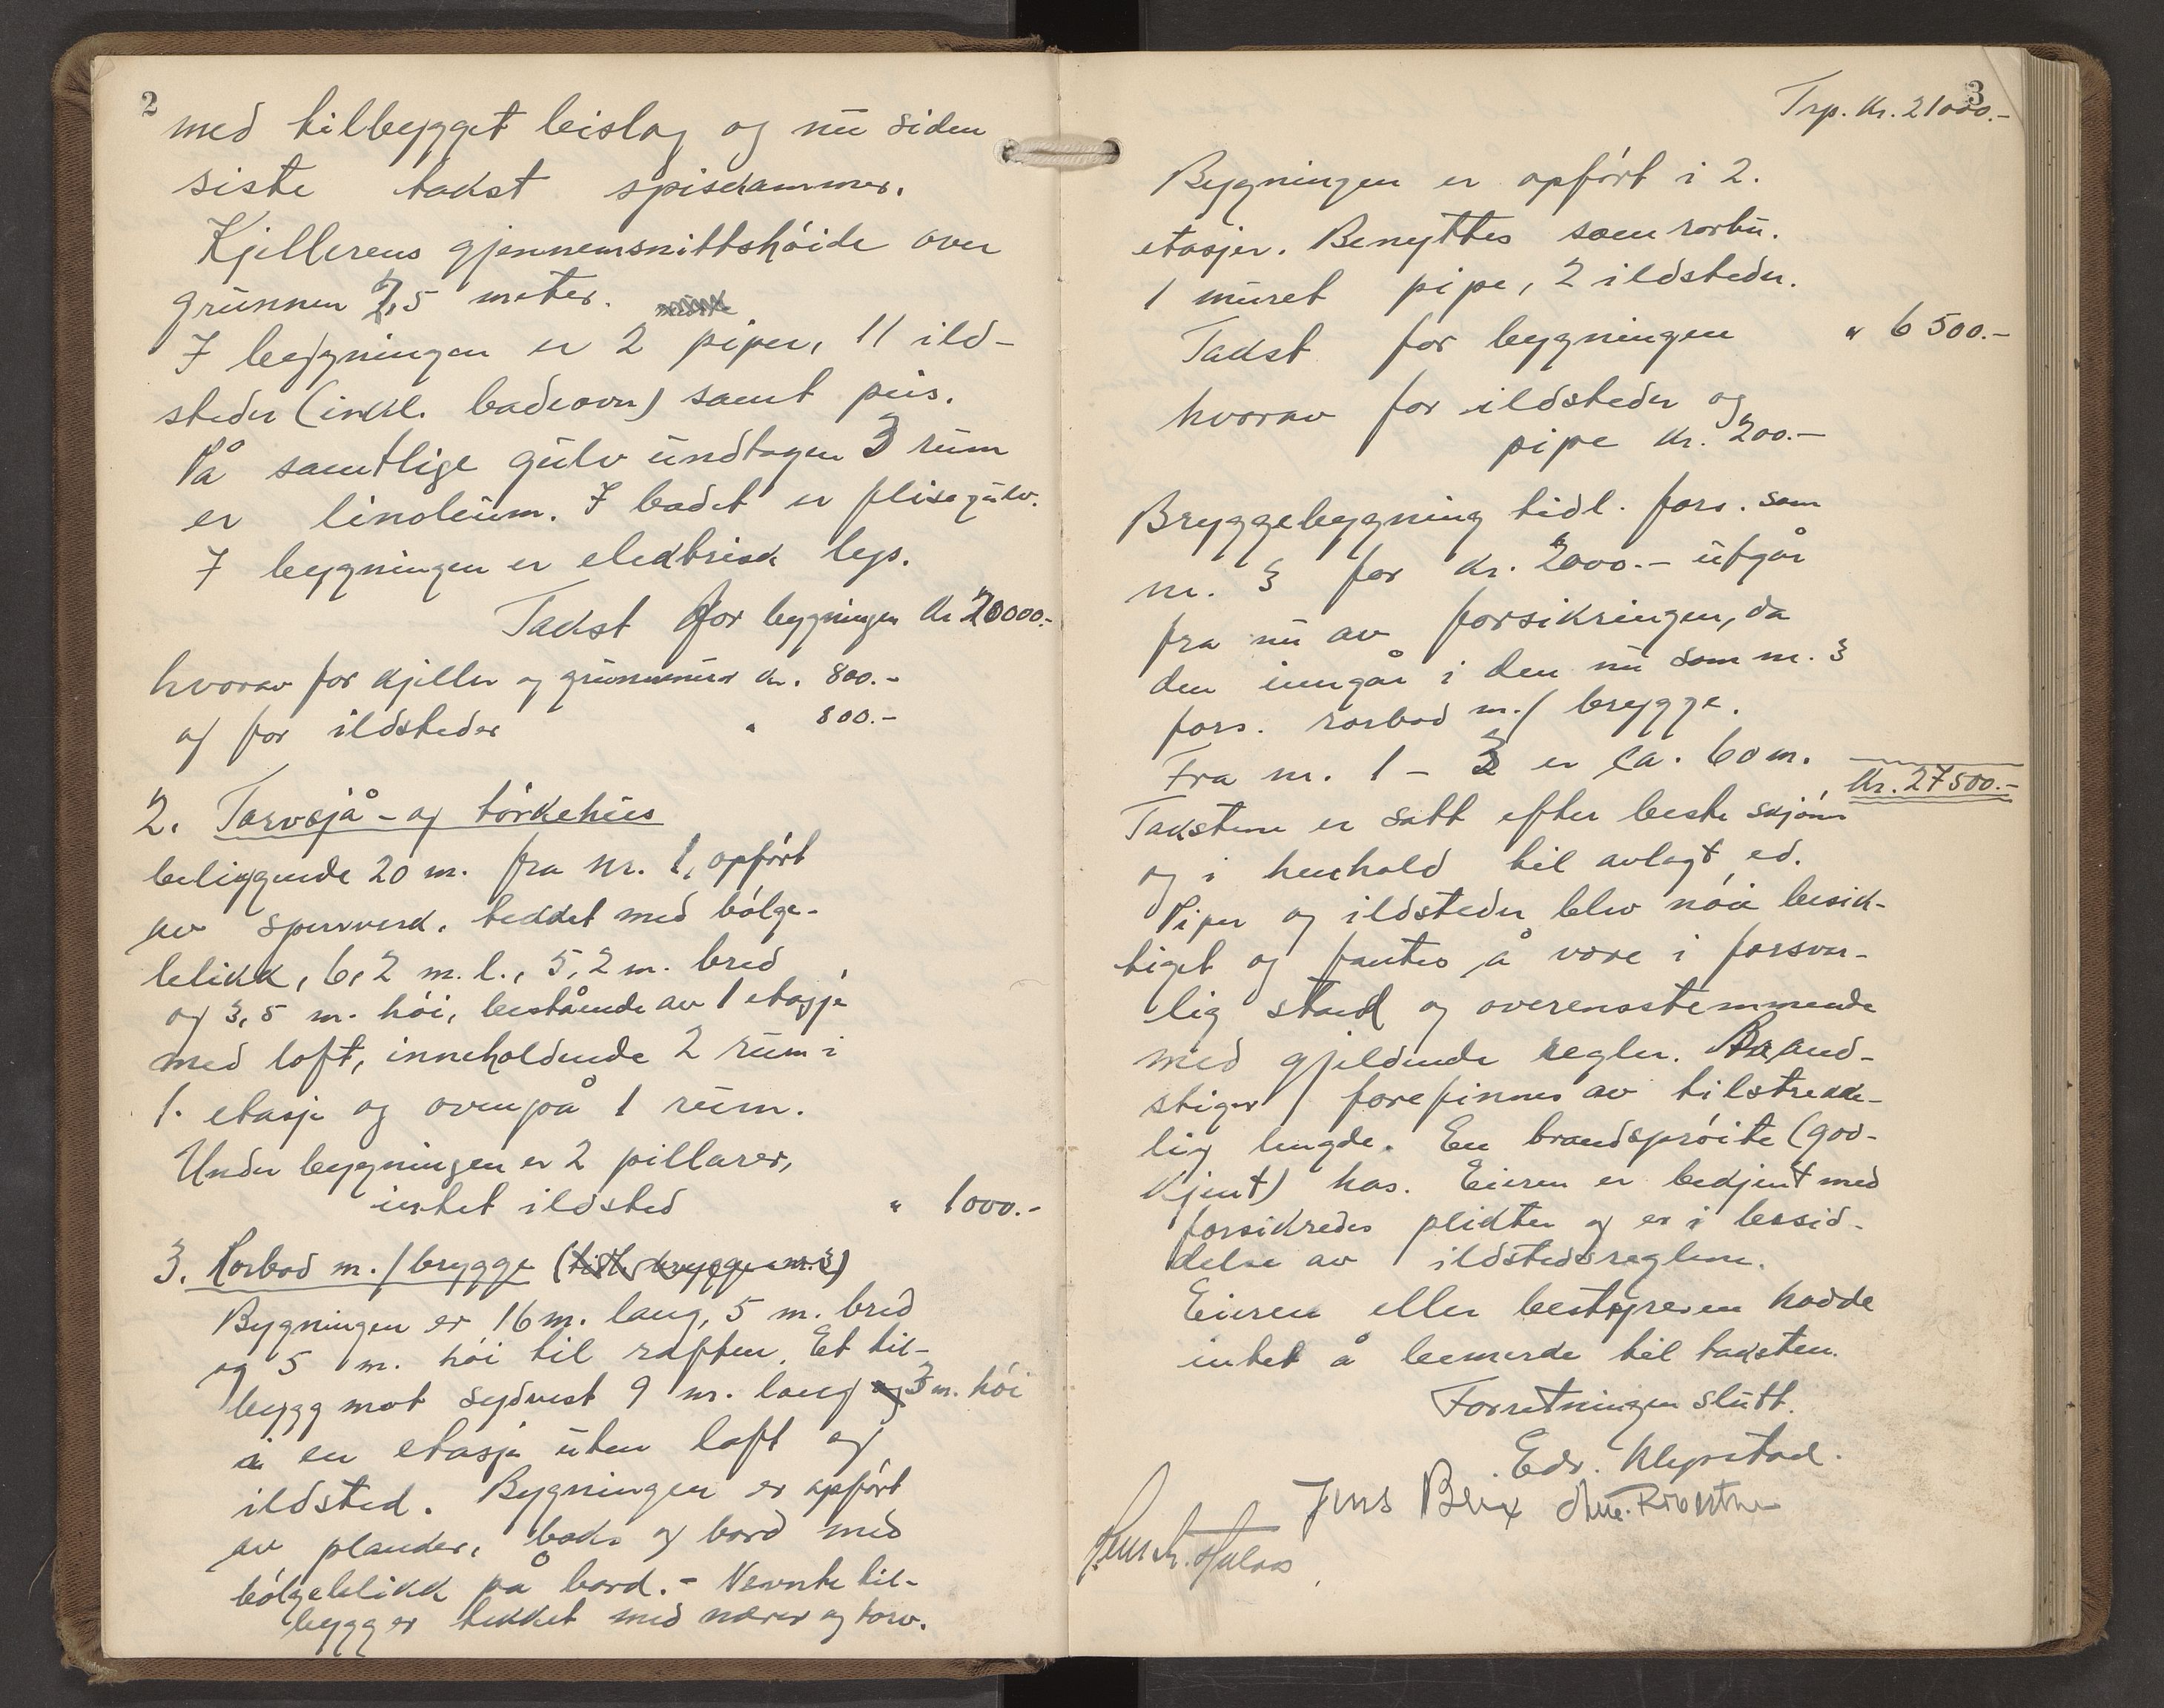 2
med tilbygget bislag og nu siden
siste takst spiskammer.
Kjellerens gjennemsnittshøide over
grunnen 2,5 meter.
I bygningen er 2 piper, 11 ild-
steder (inkl. badeovn) samt peis.
På samtlige gulv undtagen 3 rum
er linoleum. I badet er flisegulv.
I bygningen er elektrisk lys.
Takst for bygningen kr 20000.-
hvorav for kjeller og grunnmur kr. 800.-
og for ildsteder " 800.-
2. Torvsjå- og tørkehus
beliggende 20 m. fra nr. 1, opført
av sperrverk, tekket med bølge-
blikk, 6,2 m. l., 5,2 m. bred
og 3,5 m. høi, bestående av 1 etasje
med loft, inneholdende 2 rum i
1. etasje og ovenpå 1 rum.
Under bygningen er 2 pillarer,
intet ildsted " 1000.-
3. Rorbod m./brygge (tidl. brygge nr. 3)
Bygningen er 16 m. lang, 5 m. bred
og 5 m. høi til raften. Et til-
bygg mot sydvest 9 m. lang og 3 m. høi
i en etasje uten loft og
ildsted. Bygningen er opført
av planker, bake og bord med
bølgeblikk på bord. - Nevnte til-
bygg er tekket med never og torv.
3
Trp. kr. 21000.-
Bygningen er opført i 2.
etasjer. Benyttes som rorbu.
1 muret pipe, 2 ildsteder.
Takst for bygningen " 6500.-
hvorav for ildsteder og
pipe kr. 200.-
Bryggebygning tidl. fors. som
nr. 3 for kr. 2000.- utgår
fra nu av forsikringen, da
den inngår i den nu som nr. 3
fors. rorbod m./ brygge.
Fra nr. 1 - 3 er ca. 60 m.
kr. 27500.-
Takstene er satt efter beste skjønn
og i henhold til avlagt ed.
Piper og ildsteder blev nøie besik-
tiget og fantes å være i forsvar-
lig stand og overensstemmende
med gjeldende regler. Brand-
stiger forefinnes av tilstrekke-
lig lengde. En brandsprøite (god-
kjent) has. Eieren er bekjent med
forsikredes plikter og er i besid-
delse av ildstedsreglene.
Eieren eller bestyreren hadde
intet å bemerke til taksten.
Forretningen slutt.
Edv. Klepstad.
Jens Brix